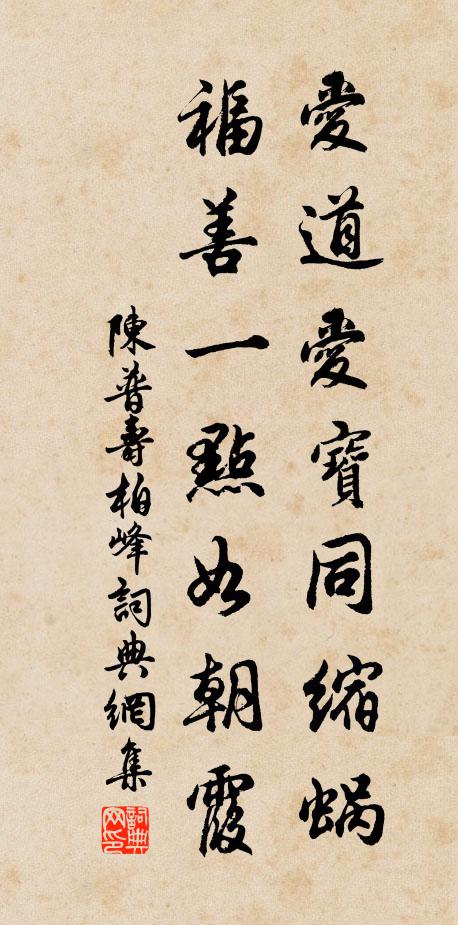 愛道愛寶同縮蝸
福善一點如朝霞
陳普壽柏峰詞典網集
詞典网印